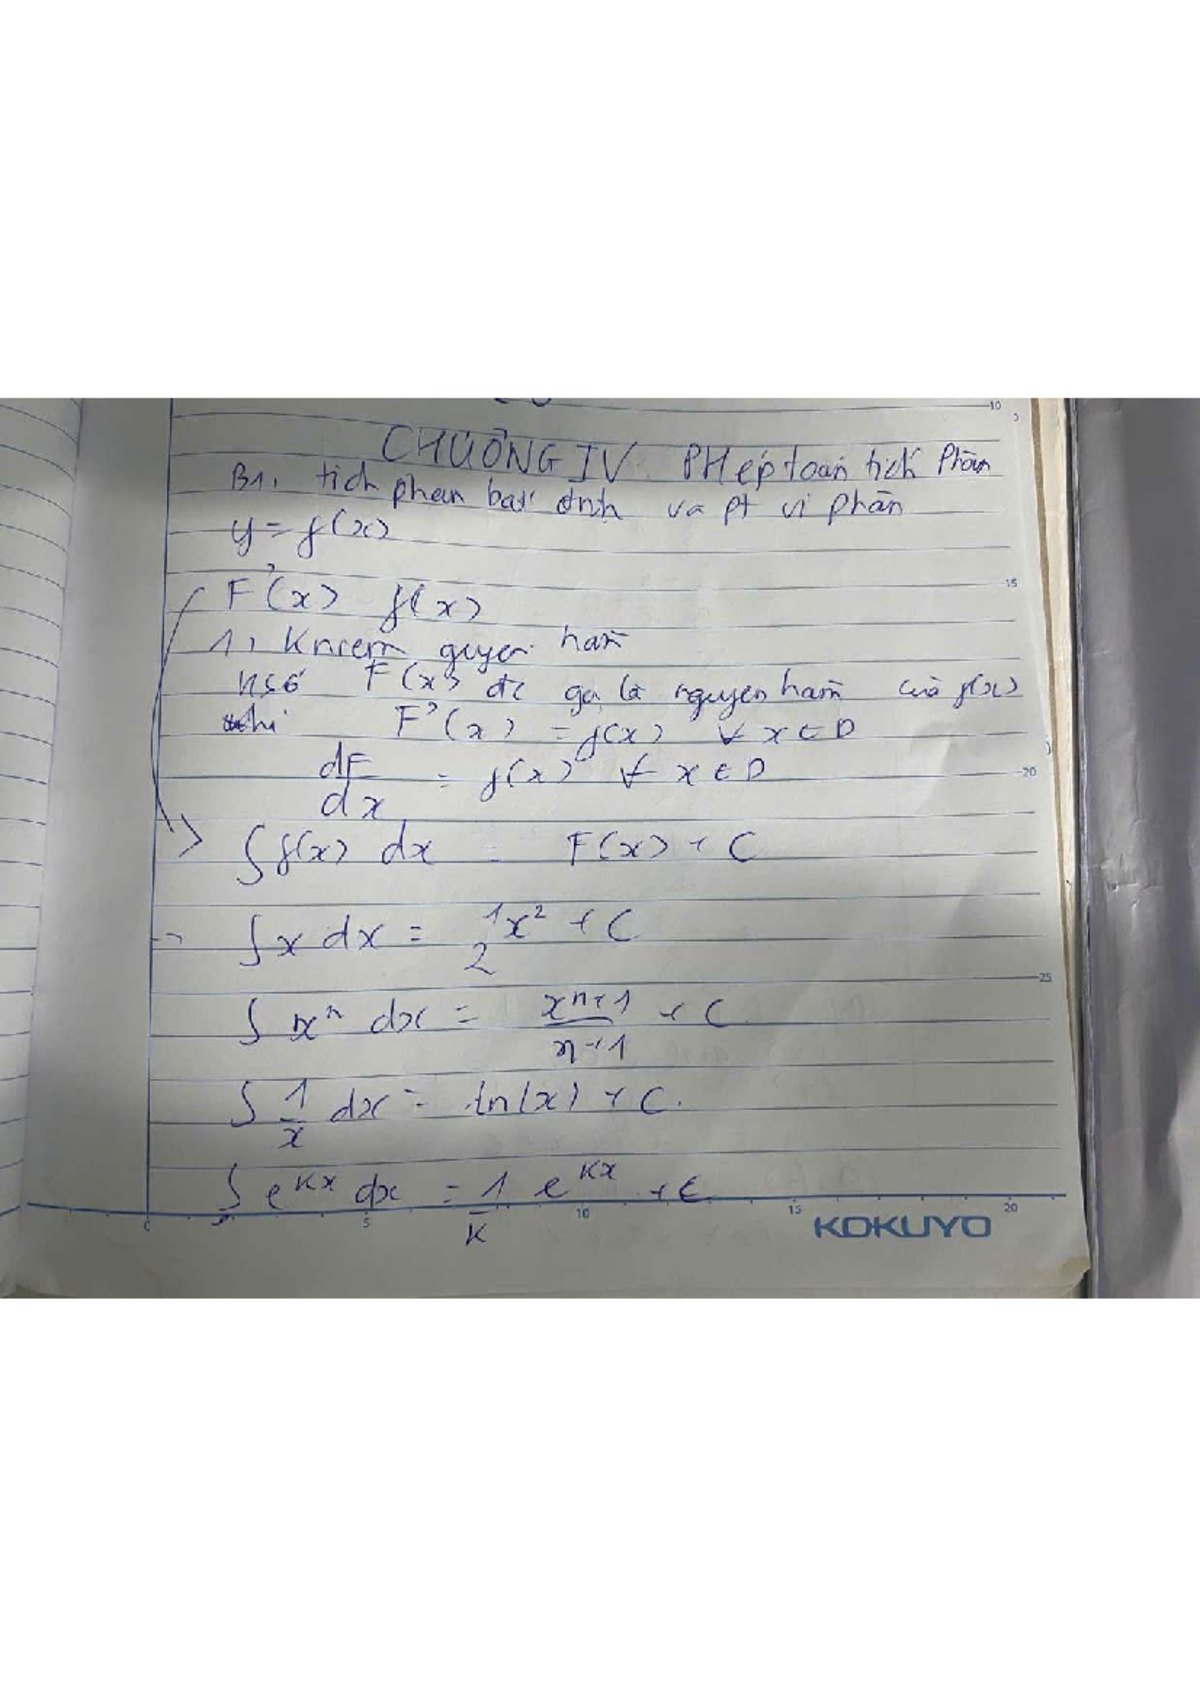 CHƯƠNG IV. PHéptoán tích Phân
B1, tích phan bất định va pt vi phân
y = f(x)
F'(x) f(x)
1, Kniem guyen ham
hsố F(x) đc gọi là nguyen ham của f(x)
khi F'(x) = f(x) ∀ x ∈ D
dF/dx = f(x) ∀ x ∈ D
∫ f(x) dx = F(x) + C
∫ x dx = 1/2 x² + C
∫ xⁿ dx = xⁿ⁺¹/n+1 + C
∫ 1/x dx = ln(x) + C.
∫ e^Kx dx = 1/K e^Kx + C
10
15
20
25
0 5 10 15 20
KOKUYO